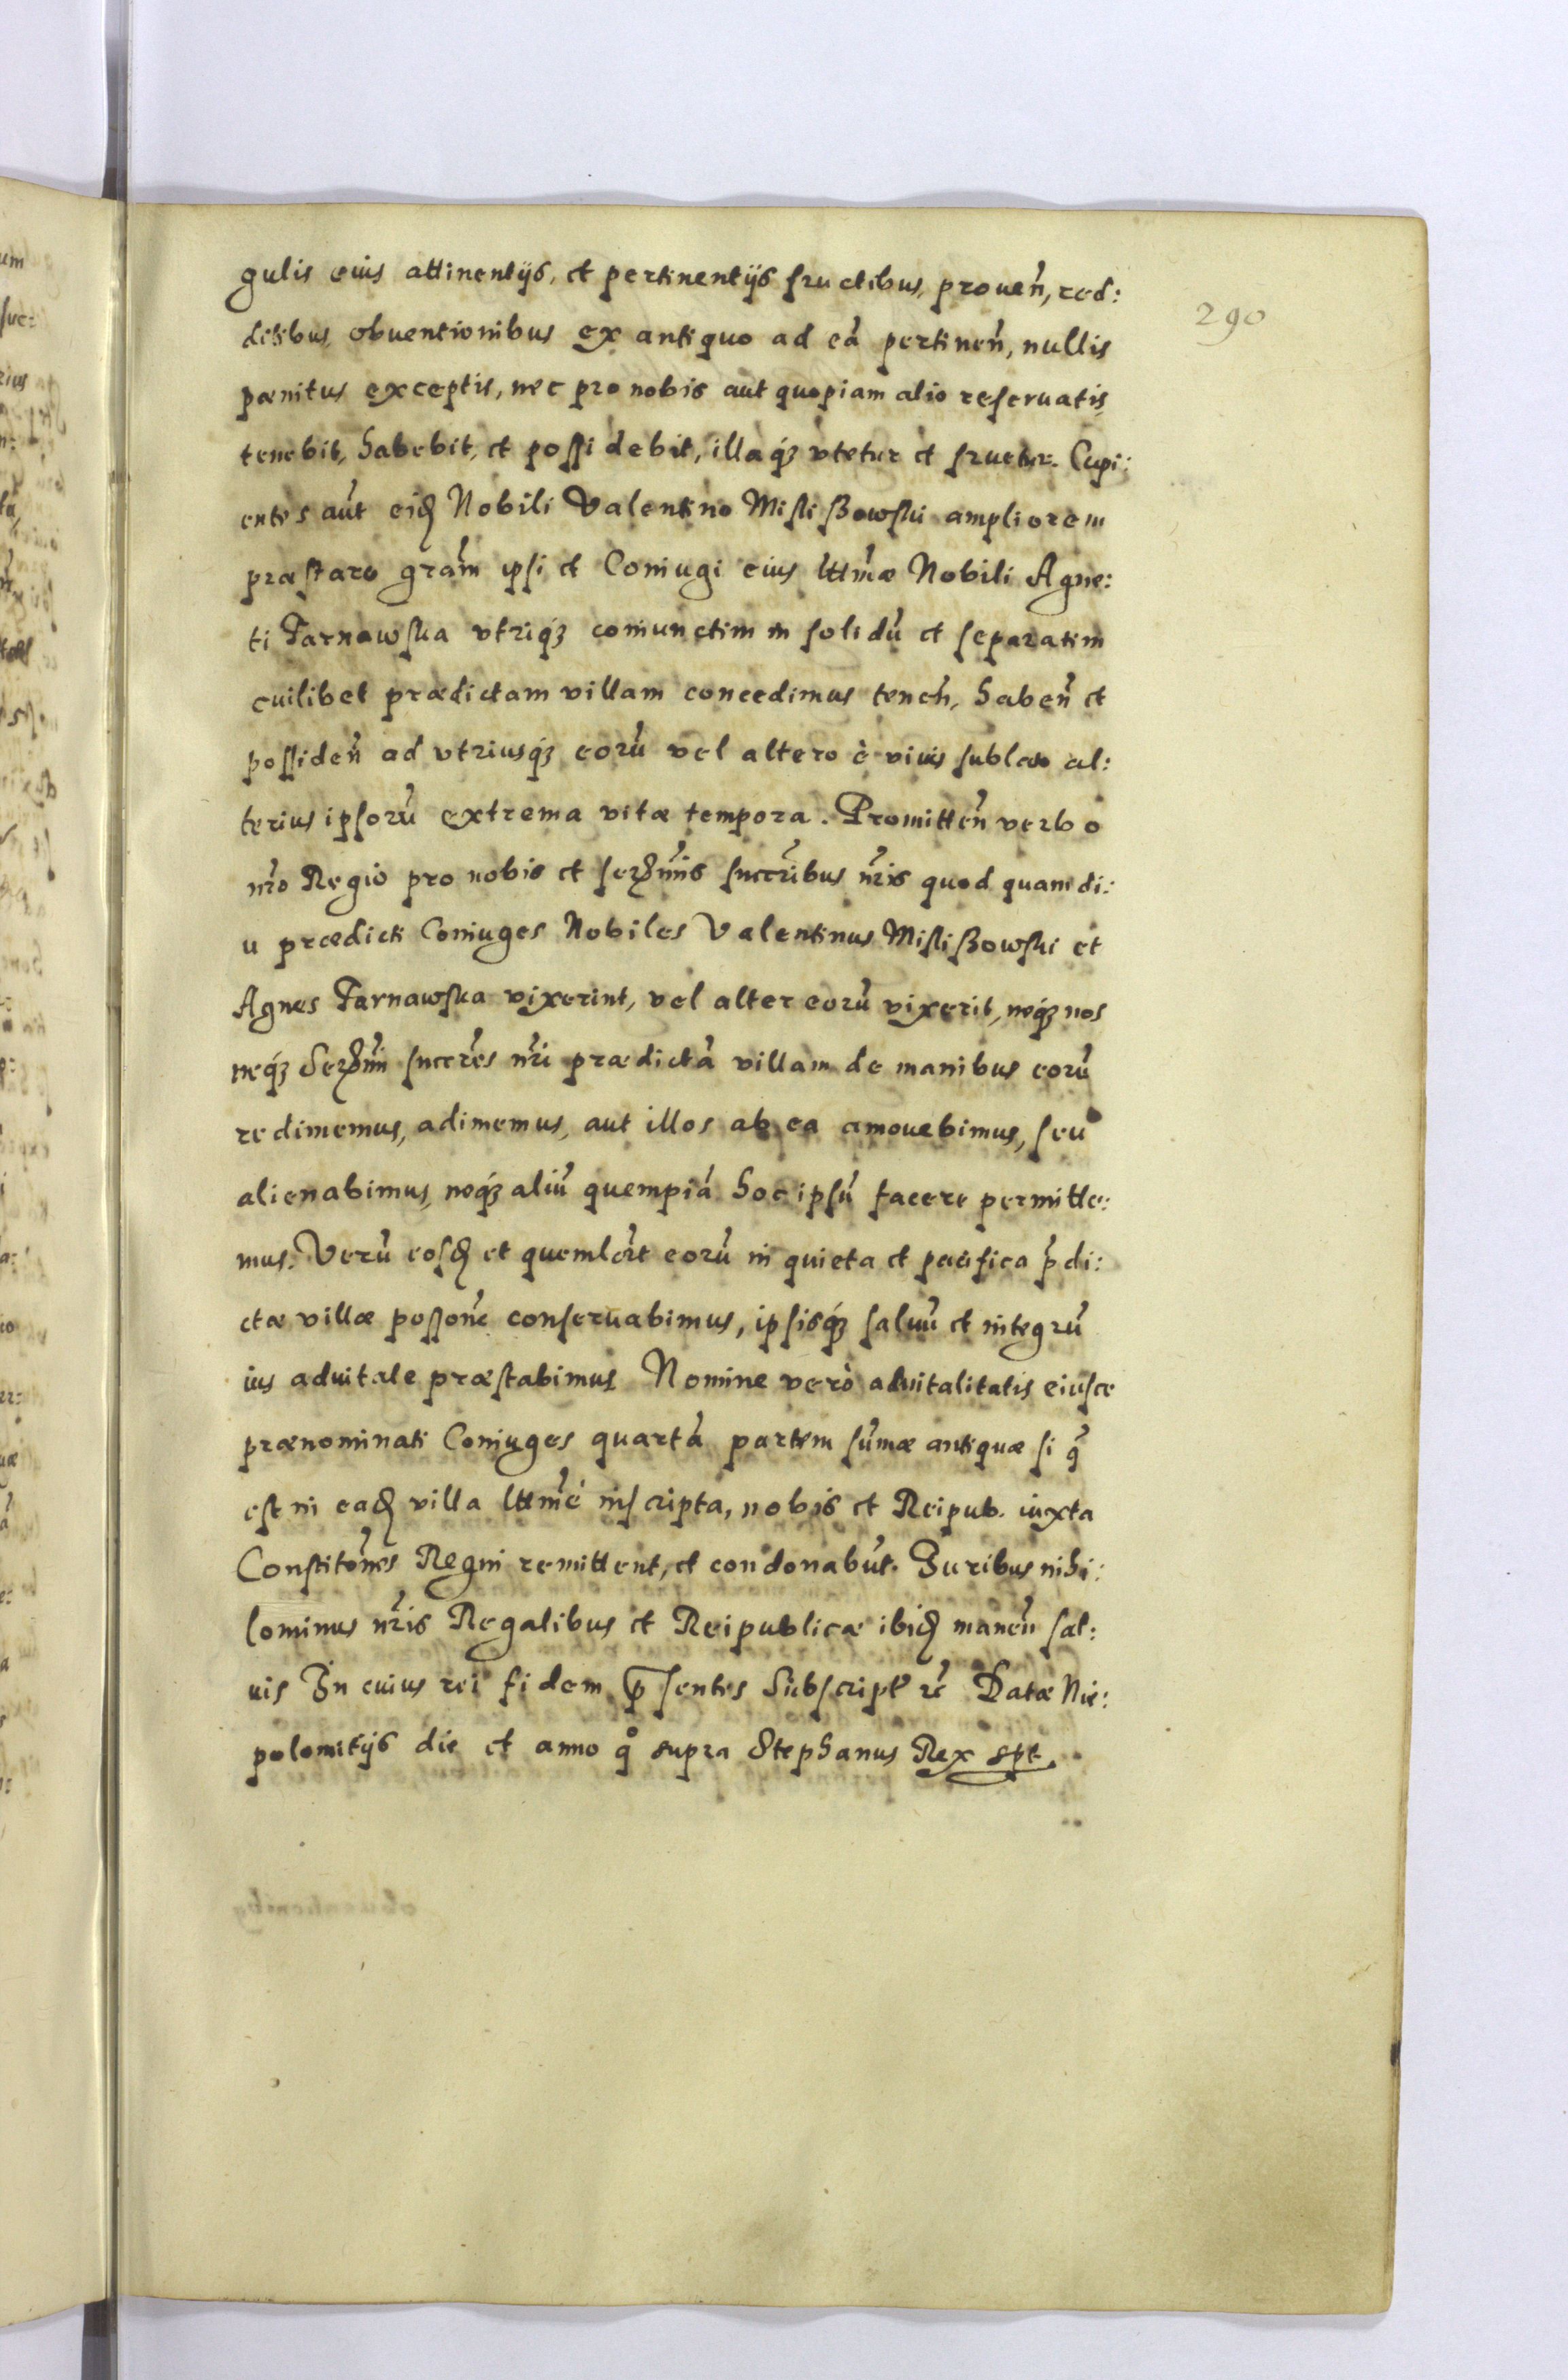 290
gulis eius attinentijs, et pertinentijs fructibus, prouen̄, red:
ditibus obuentionibus ex antiquo ad eā pertinen̄, nullis
pænitus exceptis, nec pro nobis aut quopiam alio reseruatis
tenebit, habebit, et possidebit, illaq́ꝫ vtetur et fruetur. Cupi:
entes aūt eid Nobili Valentino Mislißowski ampliorem
præstare grām ipsi et Coniugi eius lttm̄æ Nobili Agne:
ti Tarnawska vtriq́ꝫ coniunctim in solidū et separatim
cuilibet prædictam villam concedimus tenen̄, haben̄ et
possiden̄ ad vtriusq́ꝫ eorū vel altero è viuis sublato al:
terius ipsorū extrema vitæ tempora. Promitten̄ verbo
nr̄o Regio pro nobis et ser̄mis succr̄ibus nr̄is quod quamdi:
u prædicti Coniuges Nobiles Valentinus Mislißowski et
Agnes Tarnawska vixerint, vel alter eorū vixerit, neq́ꝫ nos
neq́ꝫ Ser̄mi succr̄es nr̄i prædictā villam de manibus eorū
redimemus, adimemus, aut illos ab ea amouebimus, seu
alienabimus, neq́ꝫ aliū quempiā hoc ipsū facere permitte:
mus. Verū eosd et quemlb̄t eorū in quieta et pacifica p̄di:
ctæ villæ possōne conseruabimus, ipsisq́ꝫ saluū et integrū
ius aduitale præstabimus Nomine verò aduitalitatis eiusce
prænominati Coniuges quartā partem sum̄æ antiquæ si q̄
est in ead villa lttm̄è inscripta, nobis et Reipub. iuxta
Constitōnes Regni remittent, et condonabūt. Iuribus nihi:
lominus nr̄is Regalibus et Reipublicæ ibid manen̄ sal:
uis In cuius rei fidem p̄sentes Subscript rc̄ Datæ Nie:
polomitijs die et anno q̊ supra Stephanus Rex spt